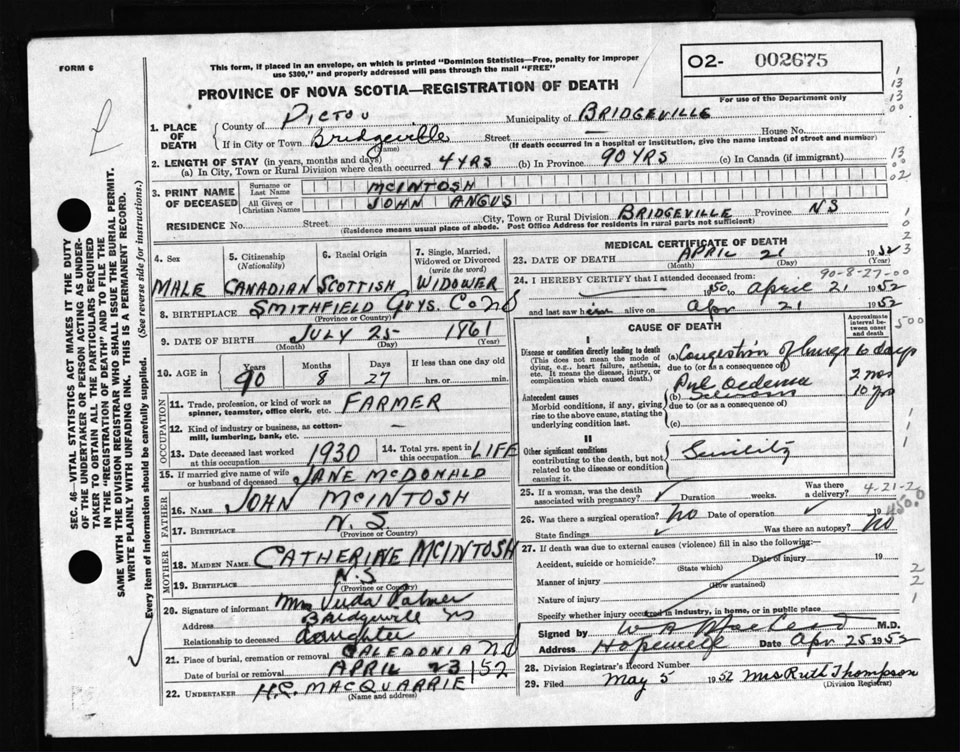 FORM 6
This form, if placed in an envelope, on which is printed "Dominion Statistics—Free, penalty for improper
use $300," and properly addressed will pass through the mail "FREE"
O2- 002675
For use of the Department only
PROVINCE OF NOVA SCOTIA—REGISTRATION OF DEATH
1. PLACE OF DEATH
County of PICTOU Municipality of BRIDGEVILLE
If in City or Town Bridgeville Street — House No.
(Name) (If death occurred in a hospital or institution, give the name instead of street and number)
2. LENGTH OF STAY (in years, months and days)
(a) In City, Town or Rural Division where death occurred 4 YRS (b) In Province 90 YRS (c) In Canada (if immigrant)
3. PRINT NAME OF DECEASED
Surname or Last Name MCINTOSH
All Given or Christian Names JOHN ANGUS
RESIDENCE No. Street City, Town or Rural Division BRIDGEVILLE Province NS
(Residence means usual place of abode. Post Office Address for residents in rural parts not sufficient)
4. Sex
MALE
5. Citizenship (Nationality)
CANADIAN
6. Racial Origin
SCOTTISH
7. Single, Married, Widowed or Divorced (write the word)
WIDOWER
8. BIRTHPLACE SMITHFIELD GUYS. CO NS
(Province or Country)
9. DATE OF BIRTH JULY 25 1861
(Month) (Day) (Year)
10. AGE in Years Months Days If less than one day old
90 8 27 hrs. or min.
OCCUPATION
11. Trade, profession, or kind of work as spinner, teamster, office clerk, etc. FARMER
12. Kind of industry or business, as cotton-mill, lumbering, bank, etc. —
13. Date deceased last worked at this occupation 1930
14. Total yrs. spent in this occupation LIFE
15. If married give name of wife or husband of deceased JANE MCDONALD
FATHER
16. NAME JOHN MCINTOSH
17. BIRTHPLACE N.S
(Province or Country)
MOTHER
18. MAIDEN NAME CATHERINE MCINTOSH
19. BIRTHPLACE N.S
(Province or Country)
20. Signature of informant Mrs Palmer
Address Bridgeville NS
Relationship to deceased daughter
21. Place of burial, cremation or removal CALEDONIA NS
Date of burial or removal APRIL 23 /52
22. UNDERTAKER MACQUARRIE
(Name and address)
MEDICAL CERTIFICATE OF DEATH
23. DATE OF DEATH APRIL 21 1952
(Month) (Day) (Year)
90-8-27-00
24. I HEREBY CERTIFY that I attended deceased from:
1950 to April 21 1952
and last saw him alive on Apr 21 1952
CAUSE OF DEATH
Approximate interval between onset and death
I
Disease or condition directly leading to death
(This does not mean the mode of dying, e.g., heart failure, asthenia, etc. It means the disease, injury, or complication which caused death.)
(a) Congestion of lungs 6 days
due to (or as a consequence of)
Antecedent causes
Morbid conditions, if any, giving rise to the above cause, stating the underlying condition last.
Pul Oedema 2 mos
(b) 10 yrs
due to (or as a consequence of)
(c)
II
Other significant conditions
contributing to the death, but not related to the disease or condition causing it.
Senility
25. If a woman, was the death associated with pregnancy? Duration weeks. Was there a delivery?
4-21-2
26. Was there a surgical operation? No Date of operation 19
State findings Was there an autopsy? No
27. If death was due to external causes (violence) fill in also the following:—
Accident, suicide or homicide? Date of injury 19
(State which)
Manner of injury
(How sustained)
Nature of injury
Specify whether injury occurred in industry, in home, or in public place
Signed by W A MacLeod M.D.
Address Hopewell Date Apr 25 1952
28. Division Registrar's Record Number
29. Filed May 5 1952 Mrs Ruth Thompson
(Division Registrar)
SEC. 46—VITAL STATISTICS ACT MAKES IT THE DUTY
OF THE UNDERTAKER OR PERSON ACTING AS UNDER-
TAKER TO OBTAIN ALL THE PARTICULARS REQUIRED
IN THE "REGISTRATION OF DEATH" AND TO FILE THE
SAME WITH THE DIVISION REGISTRAR WHO SHALL ISSUE THE BURIAL PERMIT.
WRITE PLAINLY WITH UNFADING INK. THIS IS A PERMANENT RECORD.
Every item of information should be carefully supplied. (See reverse side for instructions.)